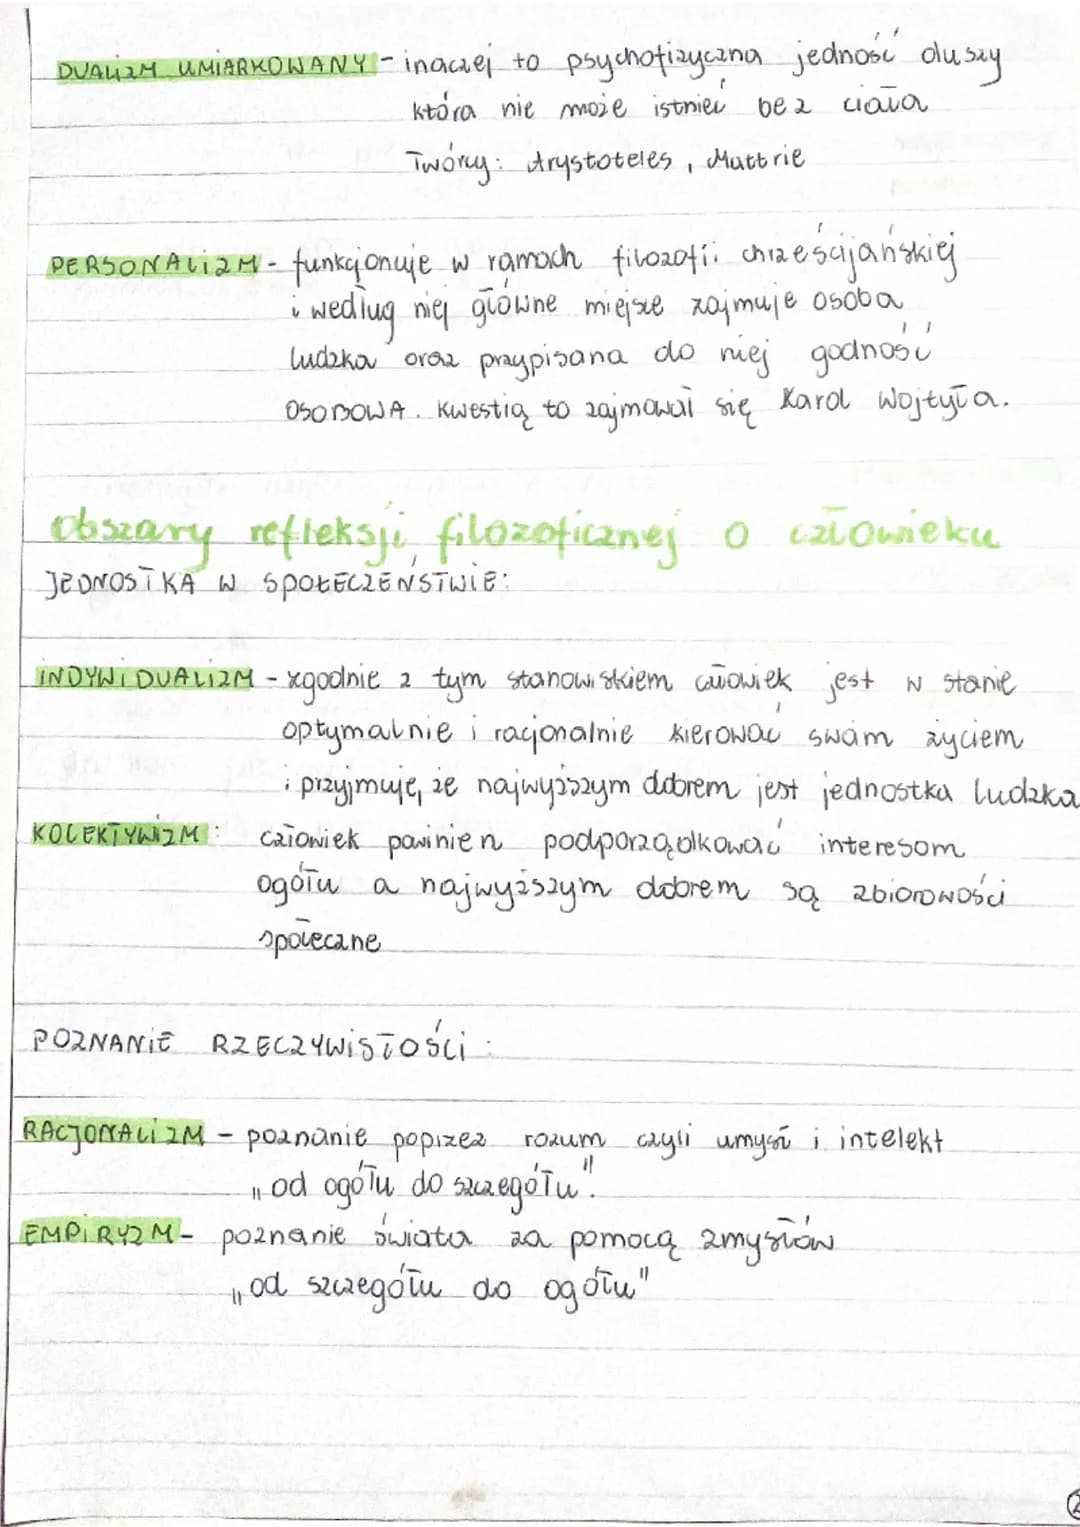 DUALIZM UMIARKOWANY - inaczej to psychofizyczna jedność duszy
która nie może istnieć bez ciała
Twórcy: Arystoteles, Mattrie
PERSONALIZM - funkcjonuje w ramach filozofii chrześcijańskiej
i według niej główne miejsce zajmuje osoba
ludzka oraz przypisana do niej godność
OSOBOWA. Kwestią to zajmował się Karol Wojtyła.
Obszary refleksji filozoficznej o człowieku
JEDNOSTKA W SPOŁECZEŃSTWIE:
INDYWIDUALIZM - zgodnie z tym stanowiskiem człowiek jest w stanie
optymalnie i racjonalnie kierować swam życiem
i przyjmuję, że najwyższym dobrem jest jednostka ludzka
KOLEKTYWIZM: człowiek powinien podporządkować interesom
ogółu a najwyższym dobrem są zbiorowości
społeczne
POZNANIE RZECZYWISTOŚCI:
RACJONALIZM - poznanie poprzez rozum czyli umysł i intelekt
„od ogółu do szczegółu".
EMPIRYZM - poznanie świata za pomocą zmysłów
„od szczegółu do ogółu"
2